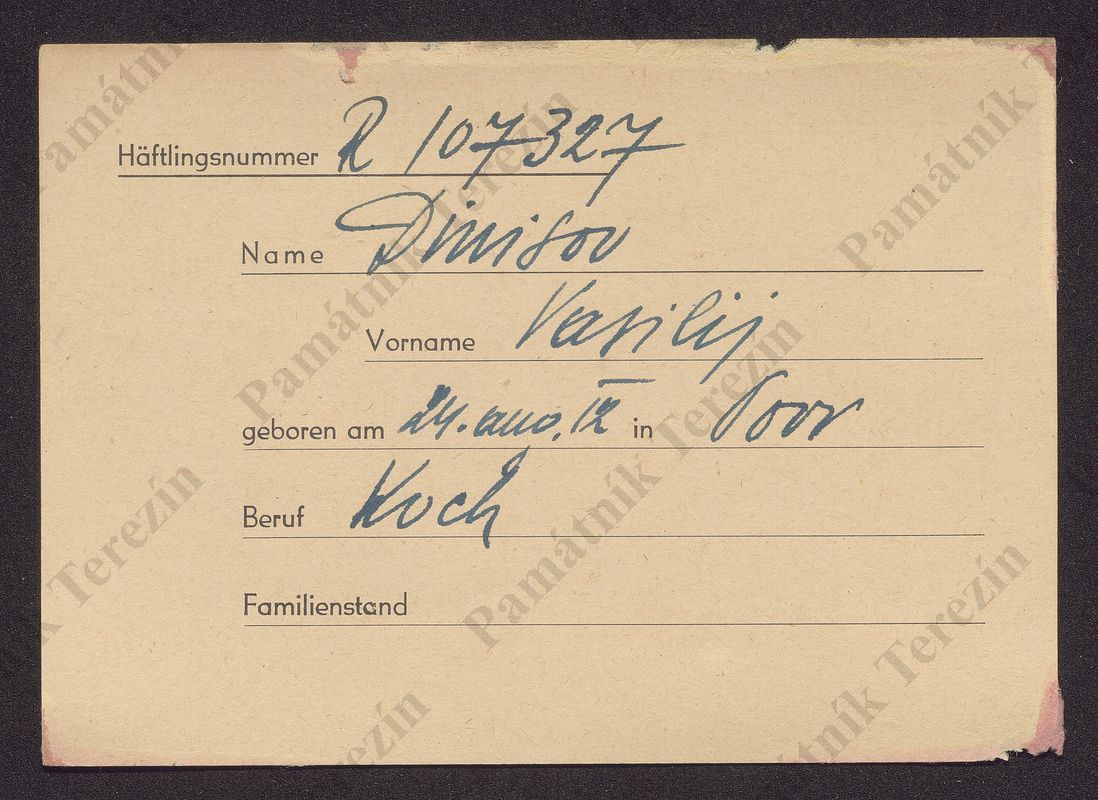 Häftlingsnummer R 107327
Name Dinisov
Vorname Vasilij
geboren am 24. aug. 12 in
Beruf Koch
Familienstand
Památník Terezín